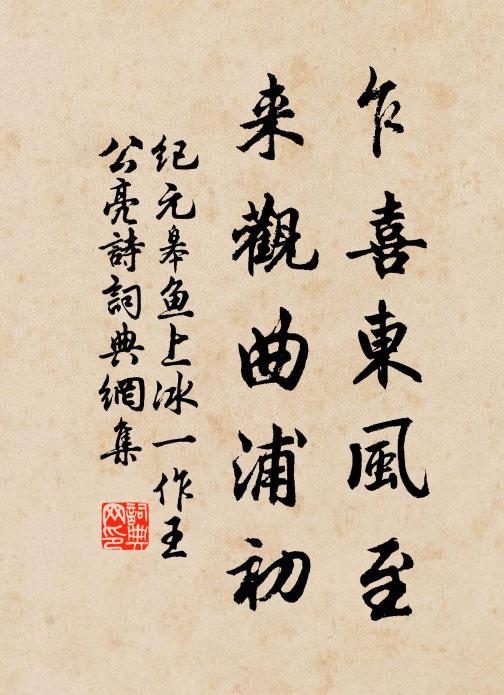 乍喜東風至
来觀曲浦初
紀元皋魚上冰一作王
公亮詩詞典網集
詞典网印